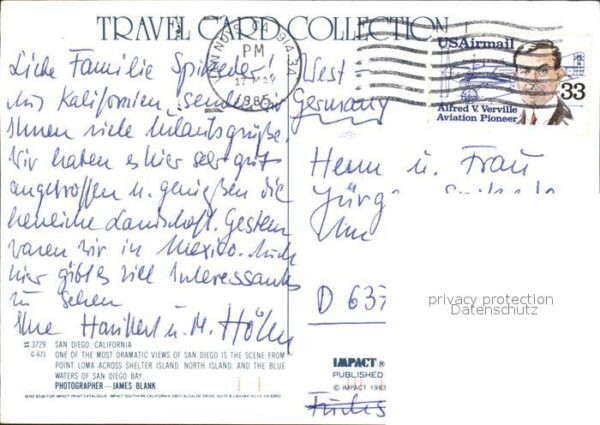 TRAVEL CARD COLLECTION
PM
1985
USAirmail
33
Alfred V. Verville
Aviation Pioneer
Liebe Familie
Aus Kalifornien senden wir
Ihnen viele Urlaubsgrüße.
Wir haben es hier sehr gut
angetroffen u. genießen die
herrliche Landschaft. Gestern
waren wir in Mexico. Auch
hier gibt es viel Interessantes
zu sehen
Ihre u. M.
West-
Germany
Herrn u. Frau
D 637
privacy protection
Datenschutz
# 3729 SAN DIEGO, CALIFORNIA
G-671 ONE OF THE MOST DRAMATIC VIEWS OF SAN DIEGO IS THE SCENE FROM
POINT LOMA ACROSS SHELTER ISLAND, NORTH ISLAND, AND THE BLUE
WATERS OF SAN DIEGO BAY
PHOTOGRAPHER—JAMES BLANK
SEND $3.00 FOR IMPACT PRINT CATALOGUE. IMPACT SOUTHERN CALIFORNIA ALCALDE DRIVE, SUITE LAGUNA HILLS, CA
IMPACT®
PUBLISHED
© IMPACT 1983